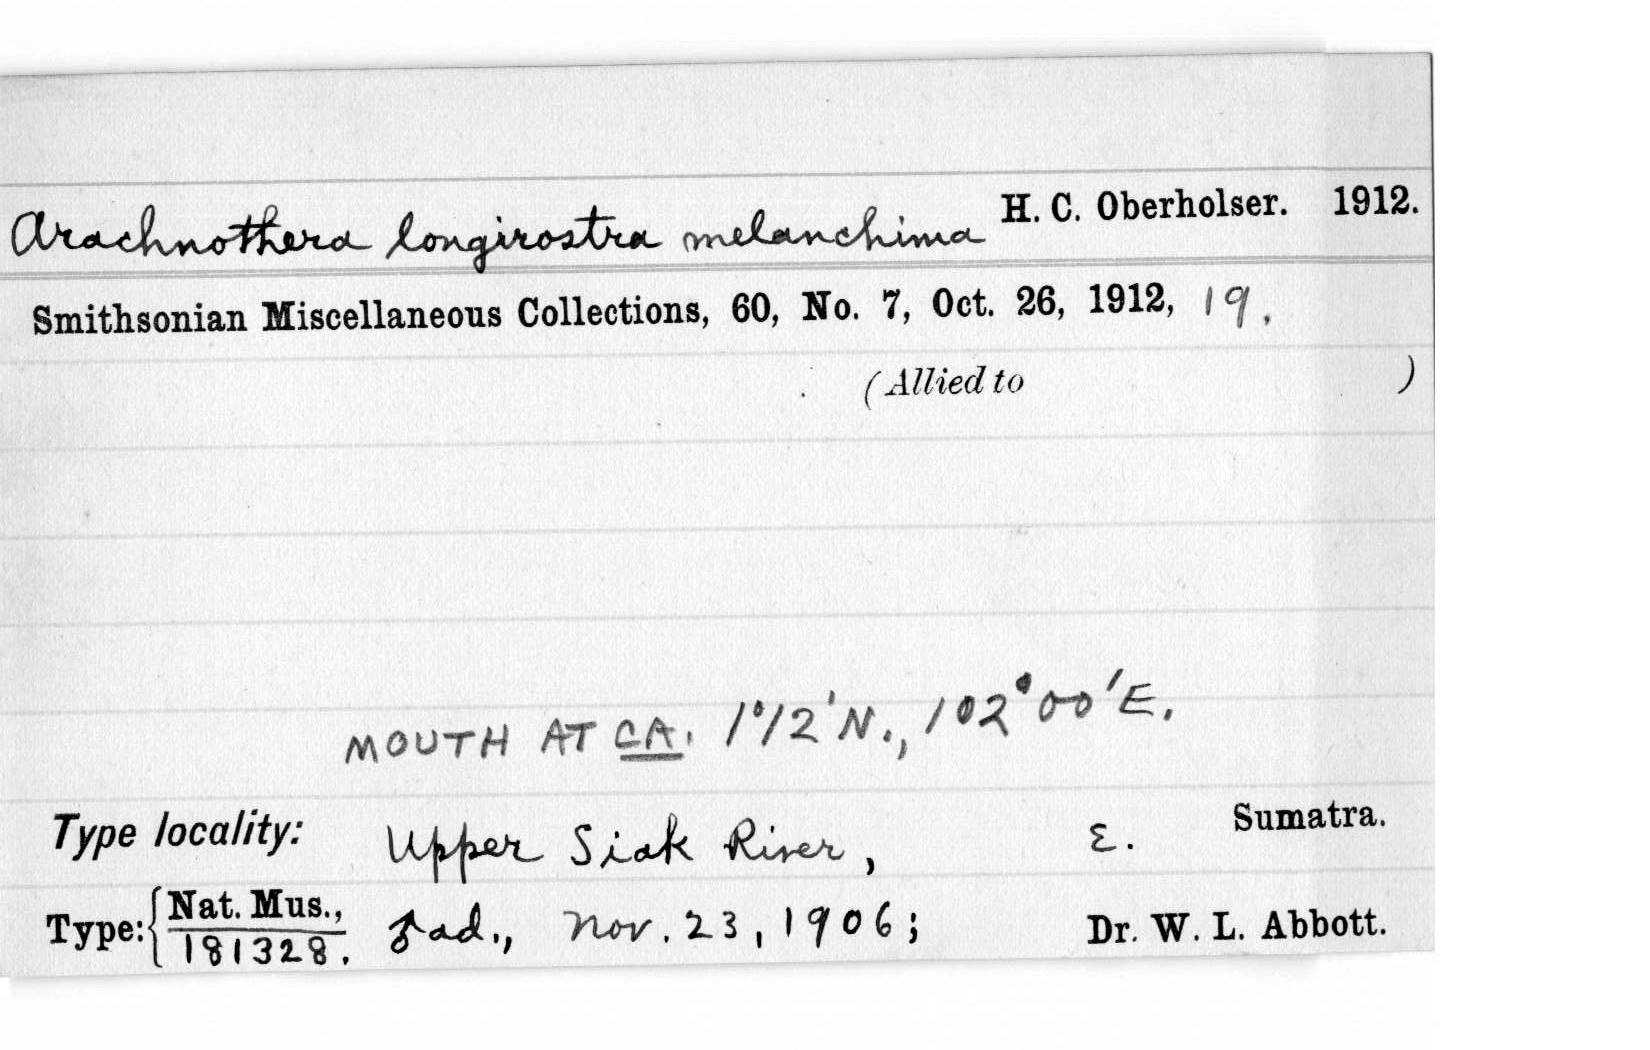 Arachnothera longirostra melanchima H. C. Oberholser. 1912.
Smithsonian Miscellaneous Collections, 60, No. 7, Oct. 26, 1912, 19.
(Allied to )
MOUTH AT CA. 1°12'N., 102°00'E.
Type locality: Upper Siak River, E. Sumatra.
Type: { Nat. Mus., 181328. ad., Nov. 23, 1906; Dr. W. L. Abbott.